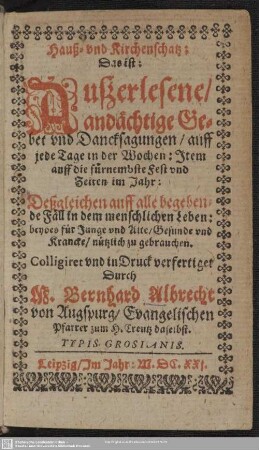 Hauß- vnd Kirchenschatz:
Das ist:
Außerlesene/
andächtige Ge-
bet vnd Dancksagungen/ auff
jede Tage in der Wochen: Item
auff die fürnembste Fest vnd
Zeiten im Jahr:
Deßgleichen auff alle begeben-
de Fäll in dem menschlichen Leben:
beydes für Junge vnd Alte/ Gesunde vnd
Krancke/ nützlich zu gebrauchen.
Colligiret vnd in Druck verfertiget
Durch
M. Bernhard Albrecht
von Augspurg/ Evangelischen
Pfarrer zum H. Creutz daselbst.
TYPIS GROSIANIS.
Leipzig/ Im Jahr: M. DC. XXI.